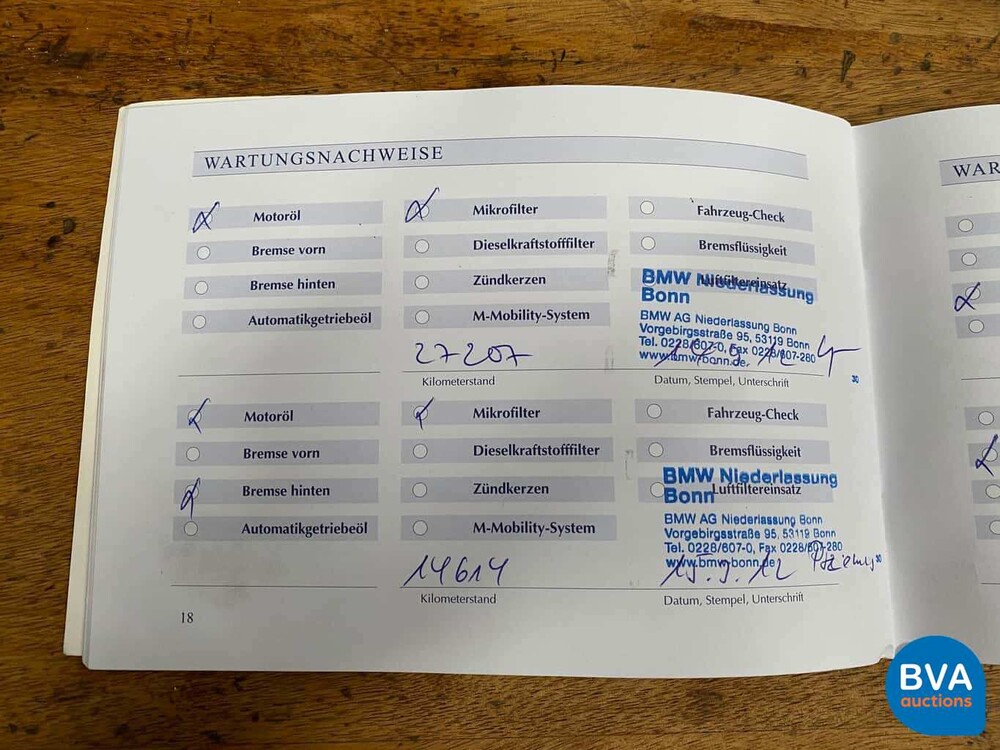 WARTUNGSNACHWEISE
WAR
Motoröl Mikrofilter Fahrzeug-Check
Bremse vorn Dieselkraftstofffilter Bremsflüssigkeit
Bremse hinten Zündkerzen Luftfiltereinsatz
Automatikgetriebeöl M-Mobility-System
BMW Niederlassung
Bonn
BMW AG Niederlassung Bonn
Vorgebirgsstraße 95, 53119 Bonn
Tel. 0228/607-0, Fax 0228/607-280
www.bmw-bonn.de
30
27207
Kilometerstand Datum, Stempel, Unterschrift
Motoröl Mikrofilter Fahrzeug-Check
Bremse vorn Dieselkraftstofffilter Bremsflüssigkeit
Bremse hinten Zündkerzen Luftfiltereinsatz
Automatikgetriebeöl M-Mobility-System
BMW Niederlassung
Bonn
BMW AG Niederlassung Bonn
Vorgebirgsstraße 95, 53119 Bonn
Tel. 0228/607-0, Fax 0228/607-280
www.bmw-bonn.de
30
14614
Kilometerstand Datum, Stempel, Unterschrift
18
BVA
auctions